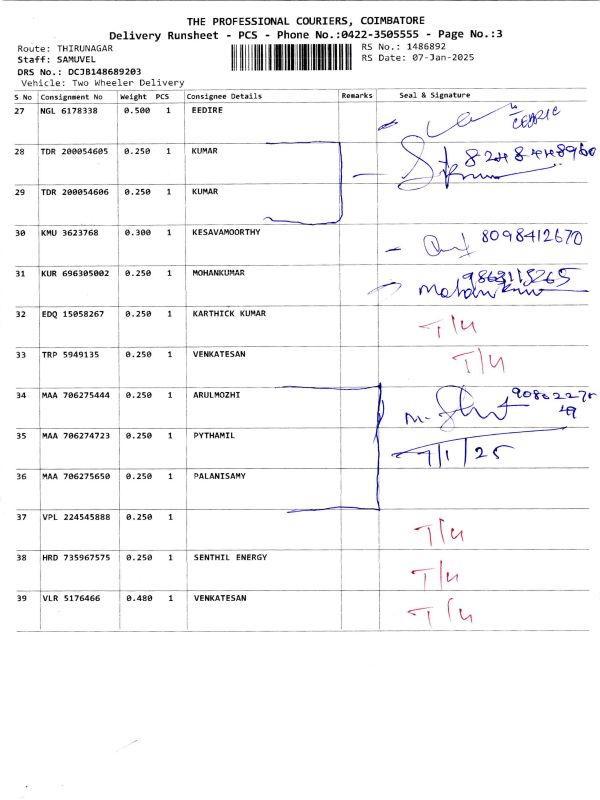 THE PROFESSIONAL COURIERS, COIMBATORE
Delivery Runsheet - PCS - Phone No.:0422-3505555 - Page No.:3
Route: THIRUNAGAR RS No.: 1486892
Staff: SAMUVEL RS Date: 07-Jan-2025
DRS No.: DCJB148689203
Vehicle: Two Wheeler Delivery
S No Consignment No Weight PCS Consignee Details Remarks Seal & Signature
27 NGL 6178338 0.500 1 EEDIRE CEDRIC
28 TDR 200054605 0.250 1 KUMAR
29 TDR 200054606 0.250 1 KUMAR
30 KMU 3623768 0.300 1 KESAVAMOORTHY 8098412670
31 KUR 696305002 0.250 1 MOHANKUMAR
32 EDQ 15058267 0.250 1 KARTHICK KUMAR T/4
33 TRP 5949135 0.250 1 VENKATESAN T/4
34 MAA 706275444 0.250 1 ARULMOZHI
35 MAA 706274723 0.250 1 PYTHAMIL 7/1/25
36 MAA 706275650 0.250 1 PALANISAMY
37 VPL 224545888 0.250 1 T/4
38 HRD 735967575 0.250 1 SENTHIL ENERGY T/4
39 VLR 5176466 0.480 1 VENKATESAN T/4